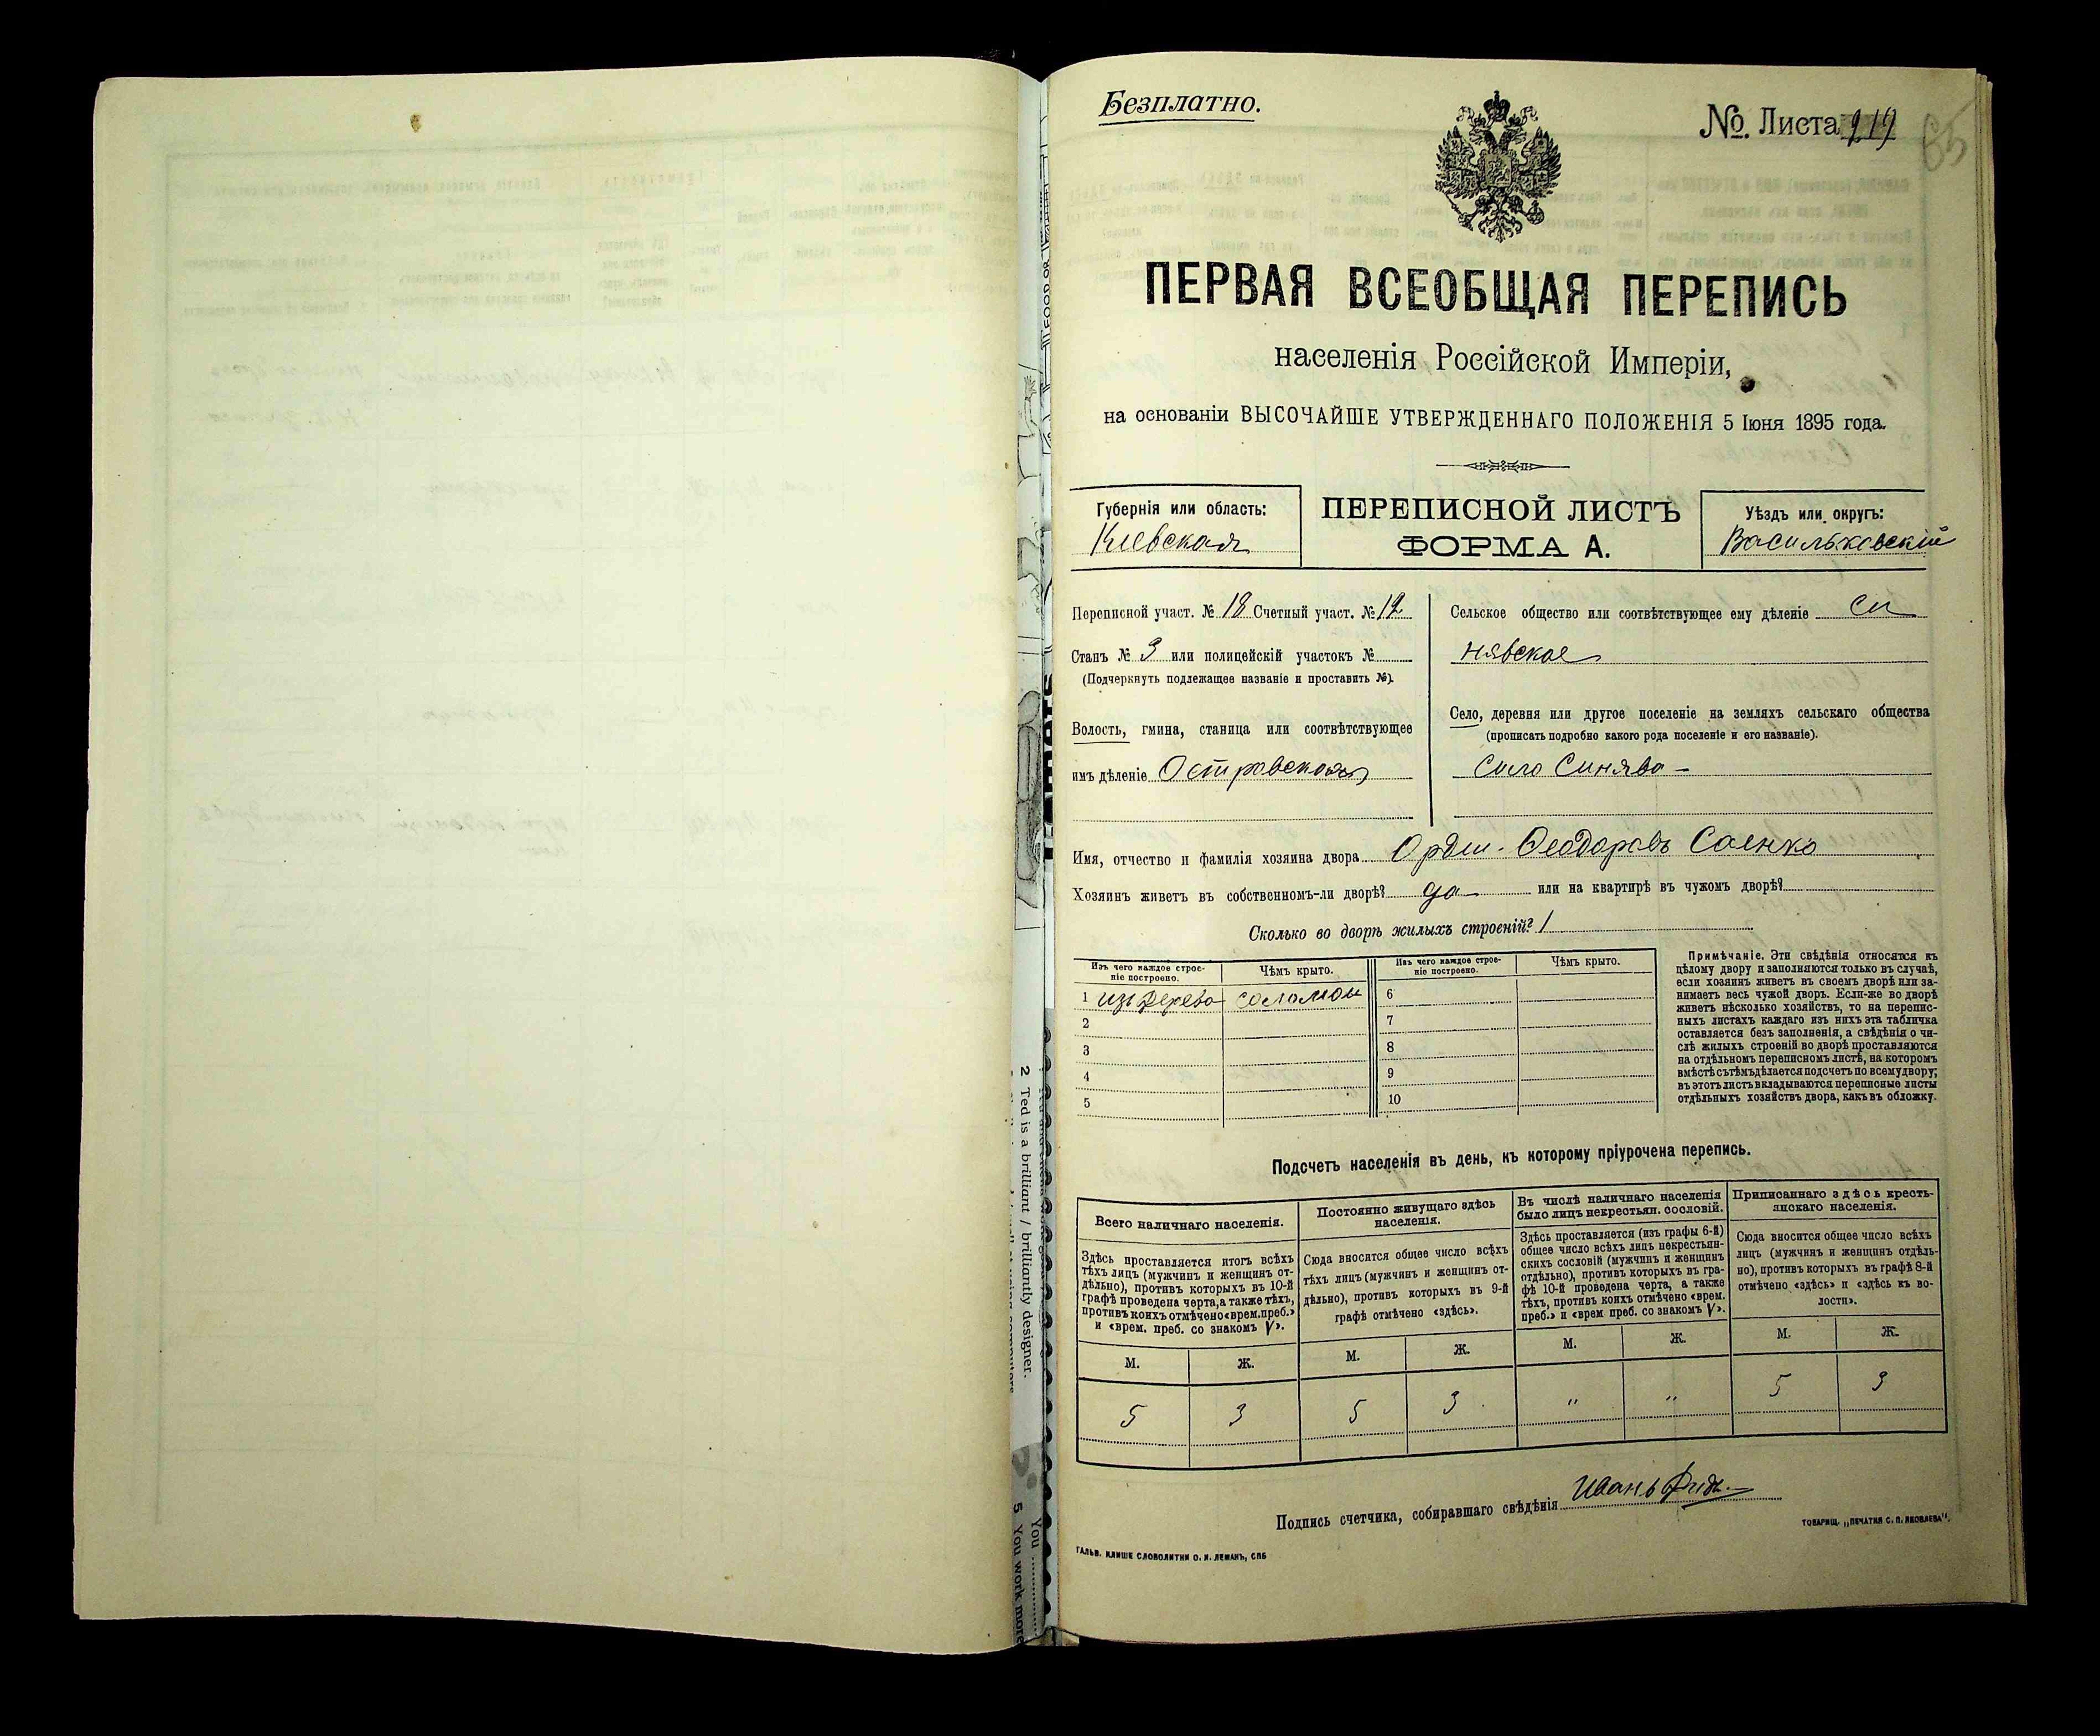 Безплатно.
№. Листа 219
65
ПЕРВАЯ ВСЕОБЩАЯ ПЕРЕПИСЬ
населенія Россійской Имперіи,
на основаніи ВЫСОЧАЙШЕ УТВЕРЖДЕННАГО ПОЛОЖЕНІЯ 5 Іюня 1895 года.
Губернія или область:
Кіевская
ПЕРЕПИСНОЙ ЛИСТЪ
ФОРМА А.
Уѣздъ или округъ:
Васильковскій
Переписной участ. № 18 Счетный участ. № 12
Станъ № 3 или полицейскій участокъ №
(Подчеркнуть подлежащее названіе и проставить №).
Волость, гмина, станица или соотвѣтствующее
имъ дѣленіе Островская
Сельское общество или соотвѣтствующее ему дѣленіе Си
нявское
Село, деревня или другое поселеніе на земляхъ сельскаго общества
(прописать подробно какого рода поселеніе и его названіе).
село Синява
Имя, отчество и фамилія хозяина двора Теодоровъ Саенко
Хозяинъ живетъ въ собственномъ-ли дворѣ? да или на квартирѣ въ чужомъ дворѣ?
Сколько во дворѣ жилыхъ строеній? 1
Изъ чего каждое строе-
ніе построено.
Чѣмъ крыто.
Изъ чего каждое строе-
ніе построено.
Чѣмъ крыто.
1 изъ дерева соломой 6
2 7
3 8
4 9
5 10
Примѣчаніе. Эти свѣдѣнія относятся къ
цѣлому двору и заполняются только въ случаѣ,
если хозяинъ живетъ въ своемъ дворѣ или за-
нимаетъ весь чужой дворъ. Если-же во дворѣ
живетъ нѣсколько хозяйствъ, то на перепис-
ныхъ листахъ каждаго изъ нихъ эта табличка
оставляется безъ заполненія, а свѣдѣнія о чи-
слѣ жилыхъ строеній во дворѣ проставляются
на отдѣльномъ переписномъ листѣ, на которомъ
вмѣстѣ съ тѣмъ дѣлается подсчетъ по всему двору;
въ этотъ листъ вкладываются переписные листы
отдѣльныхъ хозяйствъ двора, какъ въ обложку.
Подсчетъ населенія въ день, къ которому пріурочена перепись.
Всего наличнаго населенія.
Здѣсь проставляется итогъ всѣхъ
тѣхъ лицъ (мужчинъ и женщинъ от-
дѣльно), противъ которыхъ въ 10-й
графѣ проведена черта, а также тѣхъ,
противъ коихъ отмѣчено «врем. преб.»
и «врем. преб. со знакомъ V».
М. Ж.
5 3
Постоянно живущаго здѣсь
населенія.
Сюда вносится общее число всѣхъ
тѣхъ лицъ (мужчинъ и женщинъ от-
дѣльно), противъ которыхъ въ 9-й
графѣ отмѣчено «здѣсь».
М. Ж.
5 3
Въ числѣ наличнаго населенія
было лицъ некрестьян. сословій.
Здѣсь проставляется (изъ графы 6-й)
общее число всѣхъ лицъ некрестьян-
скихъ сословій (мужчинъ и женщинъ
отдѣльно), противъ которыхъ въ гра-
фѣ 10-й проведена черта, а также
тѣхъ, противъ коихъ отмѣчено «врем.
преб.» и «врем. преб. со знакомъ V».
М. Ж.
" "
Приписаннаго здѣсь кресть-
янскаго населенія.
Сюда вносится общее число всѣхъ
лицъ (мужчинъ и женщинъ отдѣль-
но), противъ которыхъ въ графѣ 8-й
отмѣчено «здѣсь» и «здѣсь къ во-
лости».
М. Ж.
5 3
Подпись счетчика, собиравшаго свѣдѣнія Иванъ
ГАЛЬВ. КЛИШЕ СЛОВОЛИТНИ О. И. ЛЕМАНЪ, СПБ
ТОВАРИЩ. „ПЕЧАТНЯ С. П. ЯКОВЛЕВА".
2 Ted is a brilliant / brilliantly designer.
5 You work more
You
FOOD OR